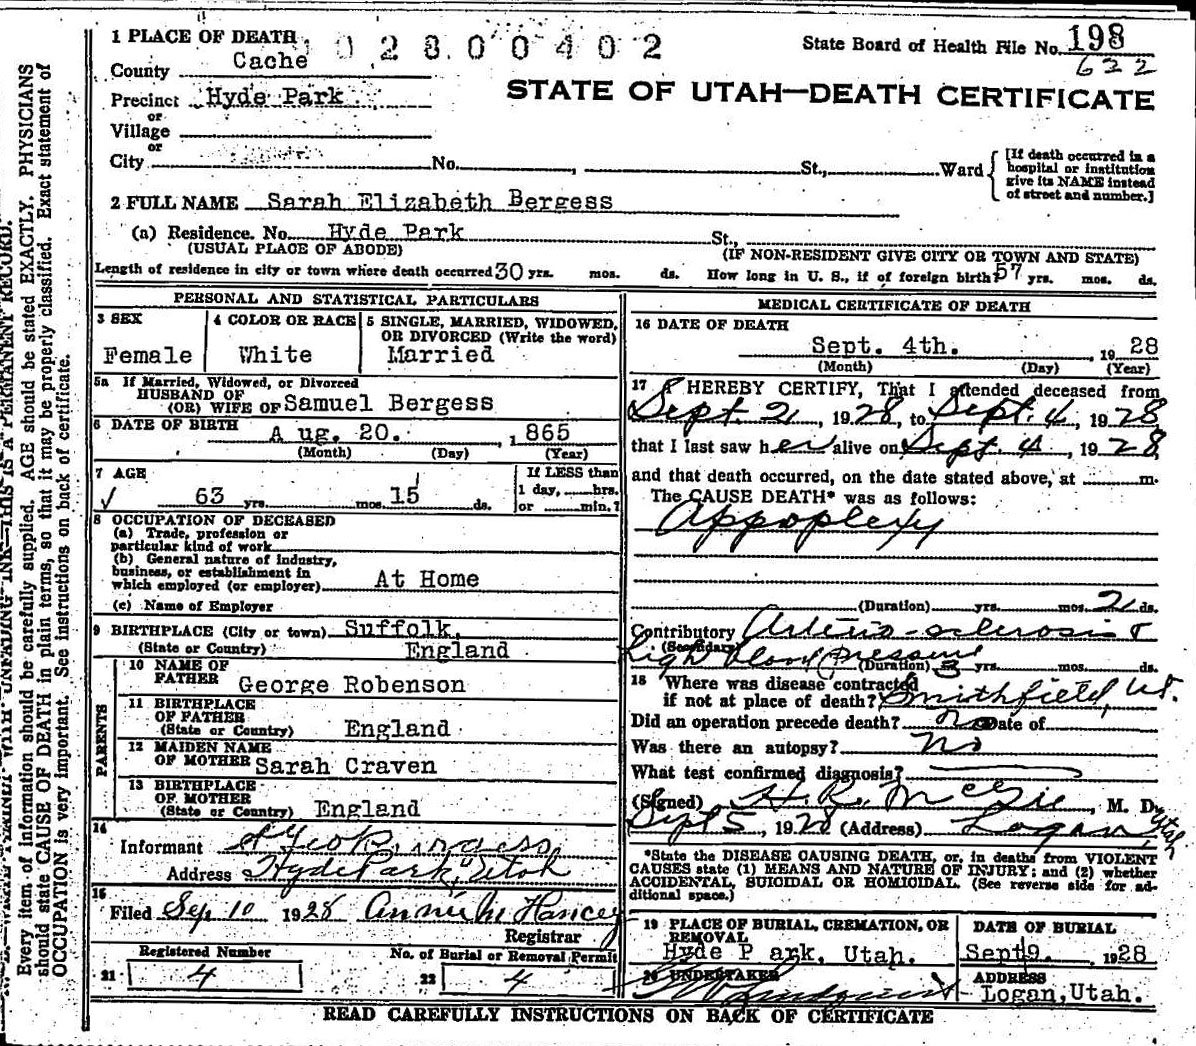 1 PLACE OF DEATH 1028 00402 State Board of Health File No. 198
County Cache 622
Precinct Hyde Park STATE OF UTAH—DEATH CERTIFICATE
or
Village
or
City No. , St., Ward { [If death occurred in a hospital or institution give its NAME instead of street and number.]
2 FULL NAME Sarah Elizabeth Bergess
(a) Residence. No. Hyde Park St.,
(USUAL PLACE OF ABODE) (IF NON-RESIDENT GIVE CITY OR TOWN AND STATE)
Length of residence in city or town where death occurred 30 yrs. mos. ds. How long in U. S., if of foreign birth? 57 yrs. mos. ds.
PERSONAL AND STATISTICAL PARTICULARS
3 SEX 4 COLOR OR RACE 5 SINGLE, MARRIED, WIDOWED, OR DIVORCED (Write the word)
Female White Married
5a If Married, Widowed, or Divorced
HUSBAND OF
(OR) WIFE OF Samuel Bergess
6 DATE OF BIRTH Aug. 20. , 1865
(Month) (Day) (Year)
7 AGE If LESS than
63 yrs. mos. 15 ds. 1 day, hrs.
or min.?
8 OCCUPATION OF DECEASED
(a) Trade, profession or
particular kind of work
(b) General nature of industry,
business, or establishment in
which employed (or employer) At Home
(c) Name of Employer
9 BIRTHPLACE (City or town) Suffolk,
(State or Country) England
PARENTS
10 NAME OF
FATHER George Robenson
11 BIRTHPLACE
OF FATHER
(State or Country) England
12 MAIDEN NAME
OF MOTHER Sarah Craven
13 BIRTHPLACE
OF MOTHER
(State or Country) England
14
Informant
Address Hyde Park, Utah
15
Filed Sep 10 1928 Annie M Hancey
Registrar
Registered Number No. of Burial or Removal Permit
21 4 22 4
MEDICAL CERTIFICATE OF DEATH
16 DATE OF DEATH
Sept. 4th. , 1928
(Month) (Day) (Year)
17 I HEREBY CERTIFY, That I attended deceased from
Sept. 2, 1928, to Sept. 4, 1928
that I last saw her alive on Sept. 4, 1928
and that death occurred, on the date stated above, at m.
The CAUSE DEATH* was as follows:
Appoplexy
(Duration) yrs. mos. 2 ds.
Contributory Arterio-sclerosis &
(Secondary)
high blood pressure (Duration) 3 yrs. mos. ds.
18 Where was disease contracted
if not at place of death? Smithfield, Ut.
Did an operation precede death? no Date of
Was there an autopsy? no
What test confirmed diagnosis?
(Signed) M. D.
Sept 5, 1928 (Address) Logan, Utah
*State the DISEASE CAUSING DEATH, or, in deaths from VIOLENT
CAUSES state (1) MEANS AND NATURE OF INJURY; and (2) whether
ACCIDENTAL, SUICIDAL OR HOMICIDAL. (See reverse side for ad-
ditional space.)
19 PLACE OF BURIAL, CREMATION, OR REMOVAL DATE OF BURIAL
Hyde Park, Utah. Sept 9. 1928
20 UNDERTAKER ADDRESS
Logan, Utah.
READ CAREFULLY INSTRUCTIONS ON BACK OF CERTIFICATE
Every item of information should be carefully supplied. AGE should be stated EXACTLY. PHYSICIANS
should state CAUSE OF DEATH in plain terms, so that it may be properly classified. Exact statement of
OCCUPATION is very important. See instructions on back of certificate.